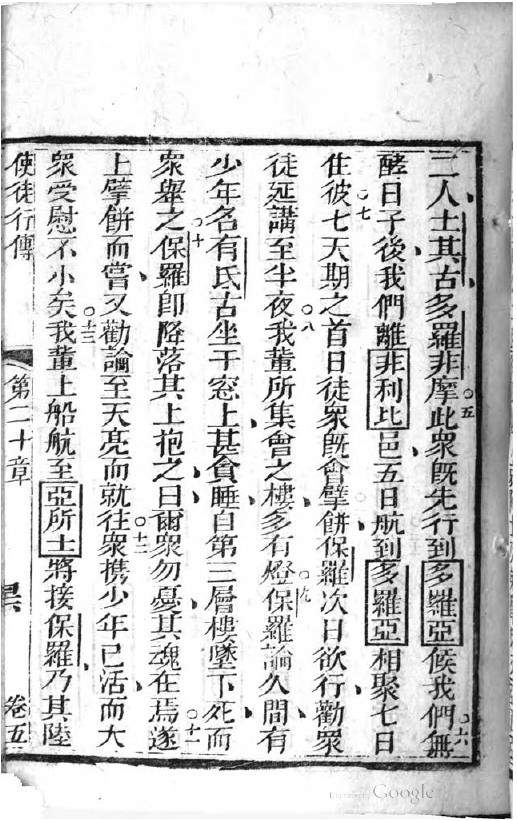 二人士其古多羅非摩此衆旣先行到多羅亞候我們無
酵日子後我們離非利比邑五日航到多羅亞相聚七日
住彼七天期之首日徒衆旣會擘餅保羅次日欲行勸衆
徒延講至半夜我輩所集會之樓多有燈保羅論久間有
少年名有氐古坐于窓上甚貪睡自第三層樓墜下死而
衆舉之保羅卽降落其上抱之曰爾衆勿憂其魂在焉遂
上擘餅而嘗又勸論至天亮而就往衆携少年已活而大
衆受慰不小矣我輩上船航至亞所士將接保羅乃其陸
使徒行傳 第二十章 卷五
五
六
七
八
九
十
十一
十二
十三
Google